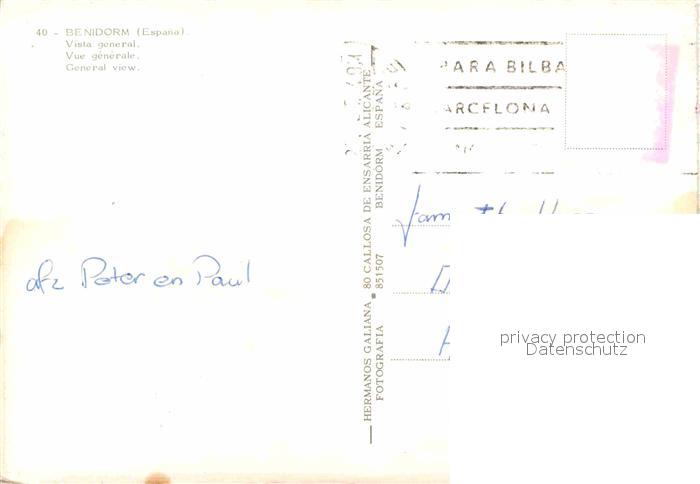 40 - BENIDORM (España).
Vista general.
Vue générale.
General view.
PARA BILBA
ARCELONA
HERMANOS GALIANA 80 CALLOSA DE ENSARRIA ALICANTE
FOTOGRAFIA 851507 BENIDORM ESPAÑA
fam
afz Peter en Paul
privacy protection
Datenschutz